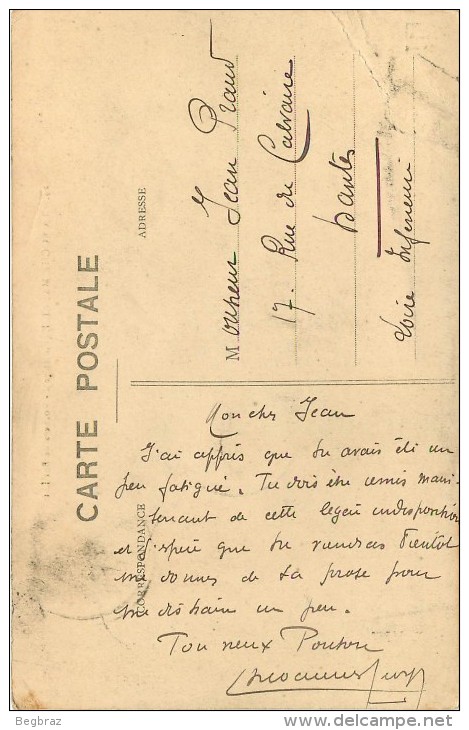 CARTE POSTALE
CORRESPONDANCE
ADRESSE
Mon cher Jean
J'ai appris que tu avais été un
peu fatigué. Tu dois être remis main-
tenant de cette légère indisposition
et j'espère que tu viendras bientôt
me donner de ta prose pour
me distraire un peu.
Ton vieux
Monsieur Jean
17. Rue du Calvaire
Nantes
Loire Inférieure
Begbraz
www.delcampe.net